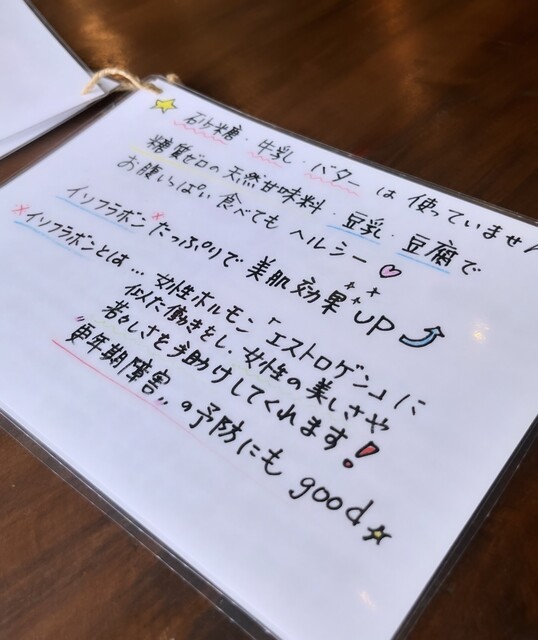 砂糖・牛乳・バターは使っていません
糖質ゼロの天然甘味料・豆乳・豆腐で
お腹いっぱい食べてもヘルシー♡
イソフラボン*たっぷりで美肌効果UP
*イソフラボンとは…女性ホルモン「エストロゲン」に
似た働きをし、女性の美しさや
若々しさをお助けしてくれます!
"更年期障害"の予防にもgood☆